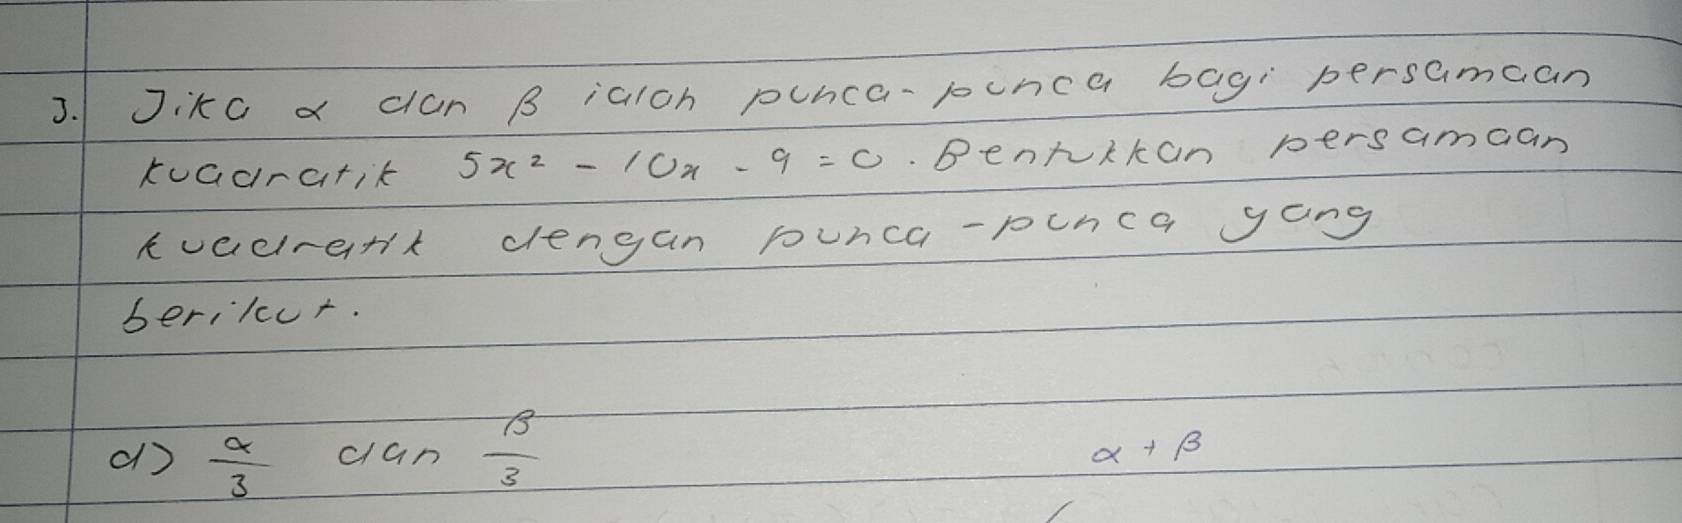 3. Jika α dan β ialah punca-punca bagi persamaan
kuadratik 5x² - 10x - 9 = 0. Bentukkan persamaan
kuadratik dengan punca-punca yang
berikut.
d) α/3 dan β/3
α + β